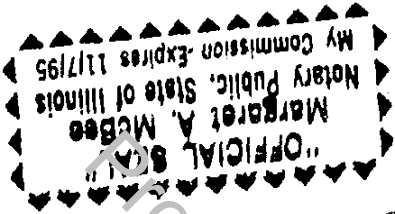 "OFFICIAL SEAL"
Margaret A. McBee
Notary Public, State of Illinois
My Commission Expires 11/7/95